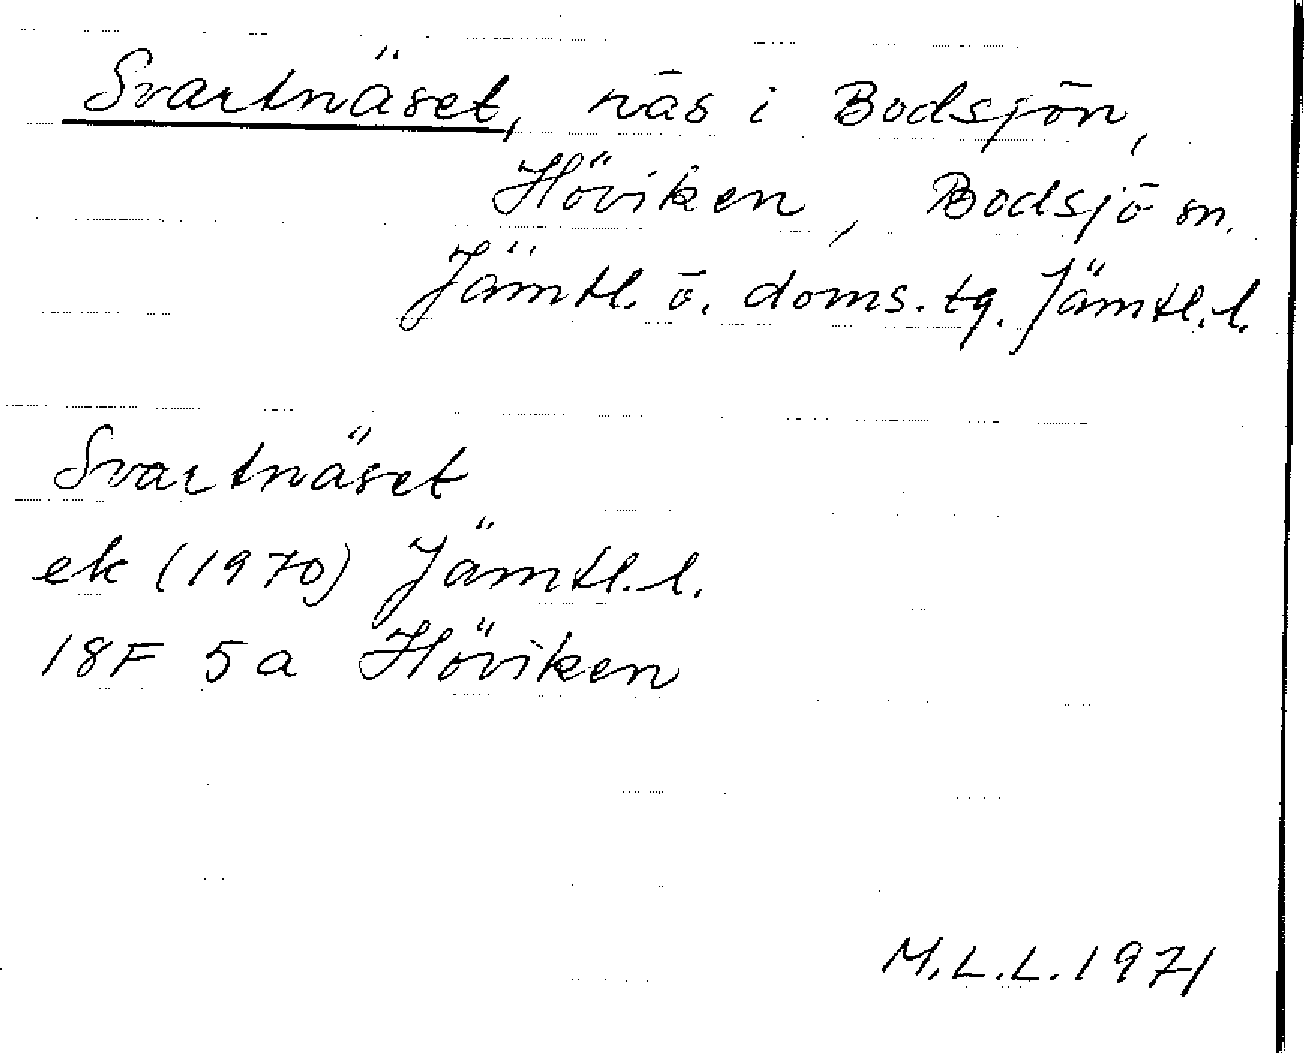 Svartnäset, näs i Bodsjön,
Höviken, Bodsjö sn.
Jämtl. ö. doms. tg. Jämtl. l.
Svartnäset
ek (1970) Jämtl. l.
18F 5a Höviken
M.L.L. 1971